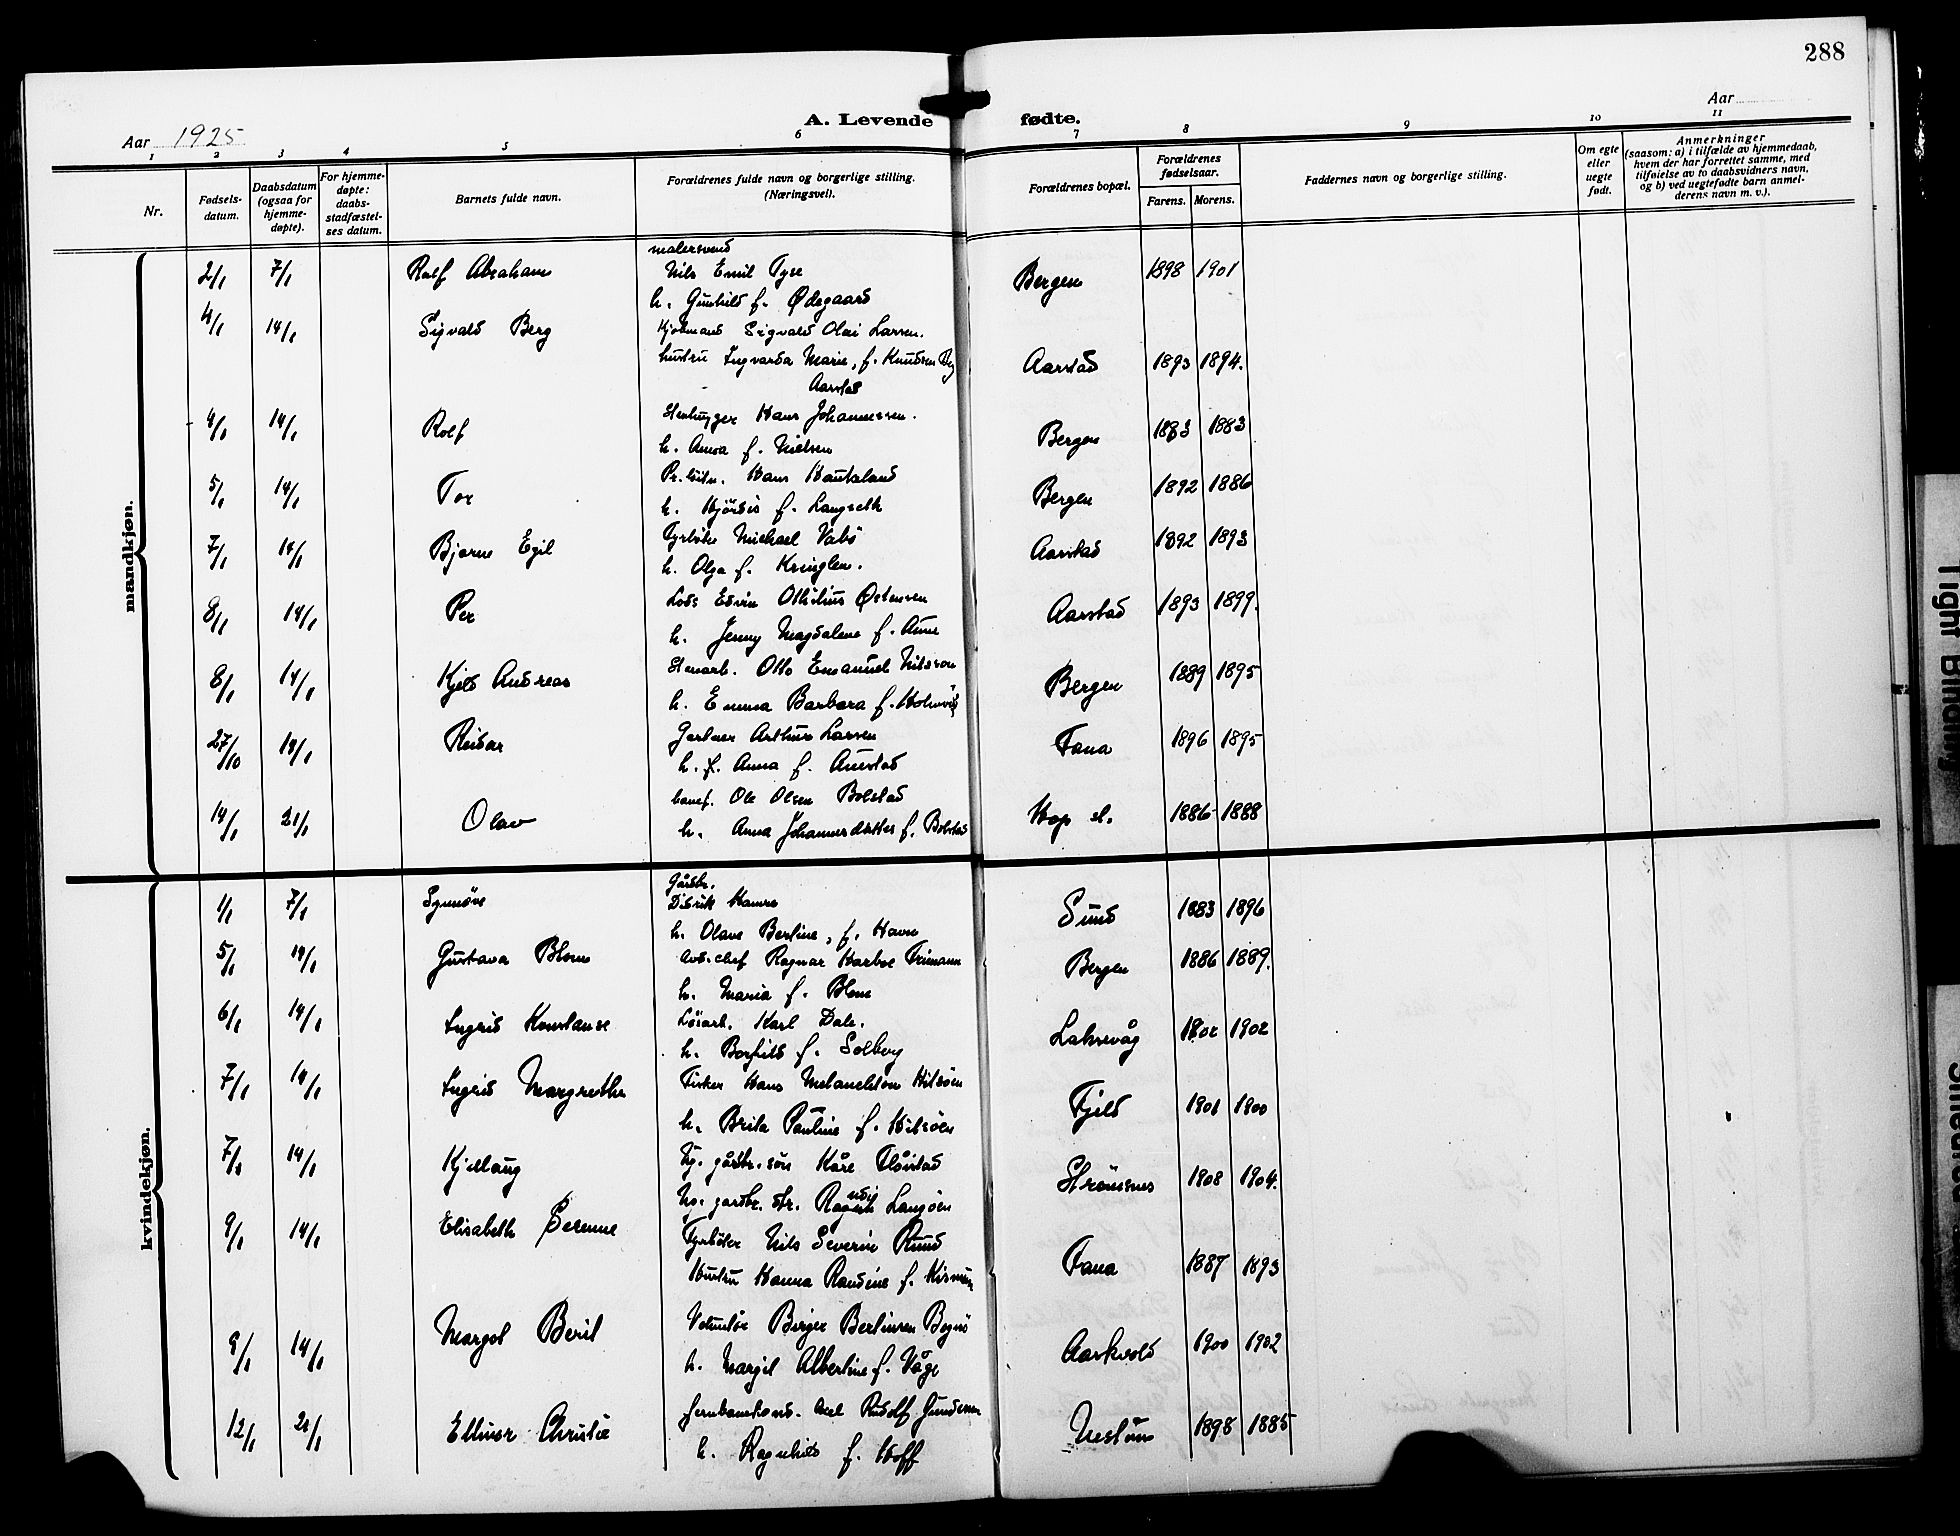 288
A. Levende fødte.
Aar 1925
Aar
1 2 3 4 5 6 7 8 9 10 11
Nr.
Fødsels-
datum.
Daabsdatum
(ogsaa for
hjemme-
døpte).
For hjemme-
døpte:
daabs-
stadfæstel-
ses datum.
Barnets fulde navn.
Forældrenes fulde navn og borgerlige stilling.
(Næringsvei).
Forældrenes bopæl.
Forældrenes
fødselsaar.
Farens. Morens.
Faddernes navn og borgerlige stilling.
Om egte
eller
uegte
født.
Anmerkninger
(saasom: a) i tilfælde av hjemmedaab,
hvem der har forrettet samme, med
tilføielse av to daabsvidners navn,
og b) ved uegtefødte barn anmel-
derens navn m. v.).
mandkjøn.
malersvend
2/1 7/1 Rolf Abraham Nils Emil Tyse Bergen 1898 1901
h. Gunhild f. Ødegaard
4/1 14/1 Sigvald Berg Kjøbmand Sigvald Olai Larsen.
hustru Ingvarda Marie, f. Knudsen Aarstad 1893 1894.
Aarstad
4/1 14/1 Rolf Stenhugger Hans Johannessen. Bergen 1883 1883
h. Anna f. Nielsen
5/1 14/1 Tor Hans Haukeland Bergen 1892 1886
h. Hjördis f. Langseth
7/1 14/1 Bjarne Egil Fyrböter Michael Vabö Aarstad 1892 1893
h. Olga f. Kringlen.
8/1 14/1 Per Lods Edvin Othilius Østensen Aarstad 1893 1899.
h. Jenny Magdalene f. Aune
8/1 14/1 Kjeld Andreas Stenarb. Otto Emanuel Nilsson Bergen 1889 1895
h. Emma Barbara f.
27/10 14/1 Reidar Gartner Arthur Larsen Fana 1896 1895
h. f. Anna f. Aarstad
14/1 21/1 Olav banef. Ole Olsen Bolstad Hop st. 1886 1888
h. Anna Johannesdatter f. Bolstad
kvindekjøn.
Gårdbr.
1/1 7/1 Synnöve Didrik Hamre Sund 1883 1896
h. Olave Bertine, f. Havn
5/1 14/1 Gustava Blom Avd.chef Ragnar Harboe Frimann Bergen 1886 1889.
h. Maria f. Blom
6/1 14/1 Ingrid Konstanse Lösarb. Karl Dale. Laksevåg 1902 1902
h. Borghild f. Solberg
7/1 14/1 Ingrid Margrethe Fisker Hans Melanchton Hilsöen Fjeld 1901 1900
h. Brita Pauline f. Hilsöen
7/1 14/1 Kjellaug Ug. gårdbr. sön Kåre Flåtstad Strömsnes 1908 1904.
Ug. gardbr. dtr. Langöen
9/1 14/1 Elisabeth Serenne Fyrböter Nils Severin Rund Fana 1887 1893
Hustru Hanna Randine f.
9/1 14/1 Margot Beril Volontör Birger Berlinsen Bognö Aarkvold 1900 1902
h. Margit Albertine f. Våge
12/1 21/1 Ellinor Christie Jernbanekond. Axel Rudolf Gundersen Nestun 1898 1885
h. Ragnhild f. Hoff